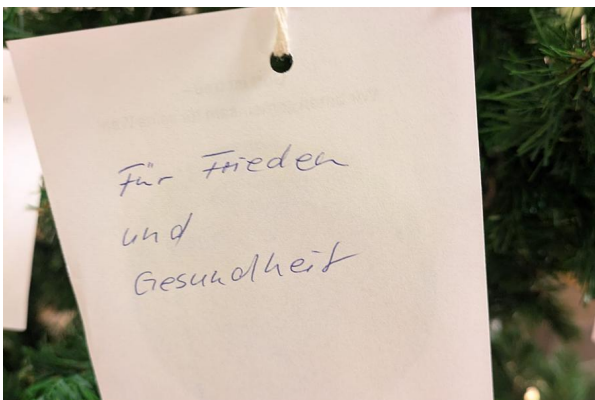 Für Frieden
und
Gesundheit